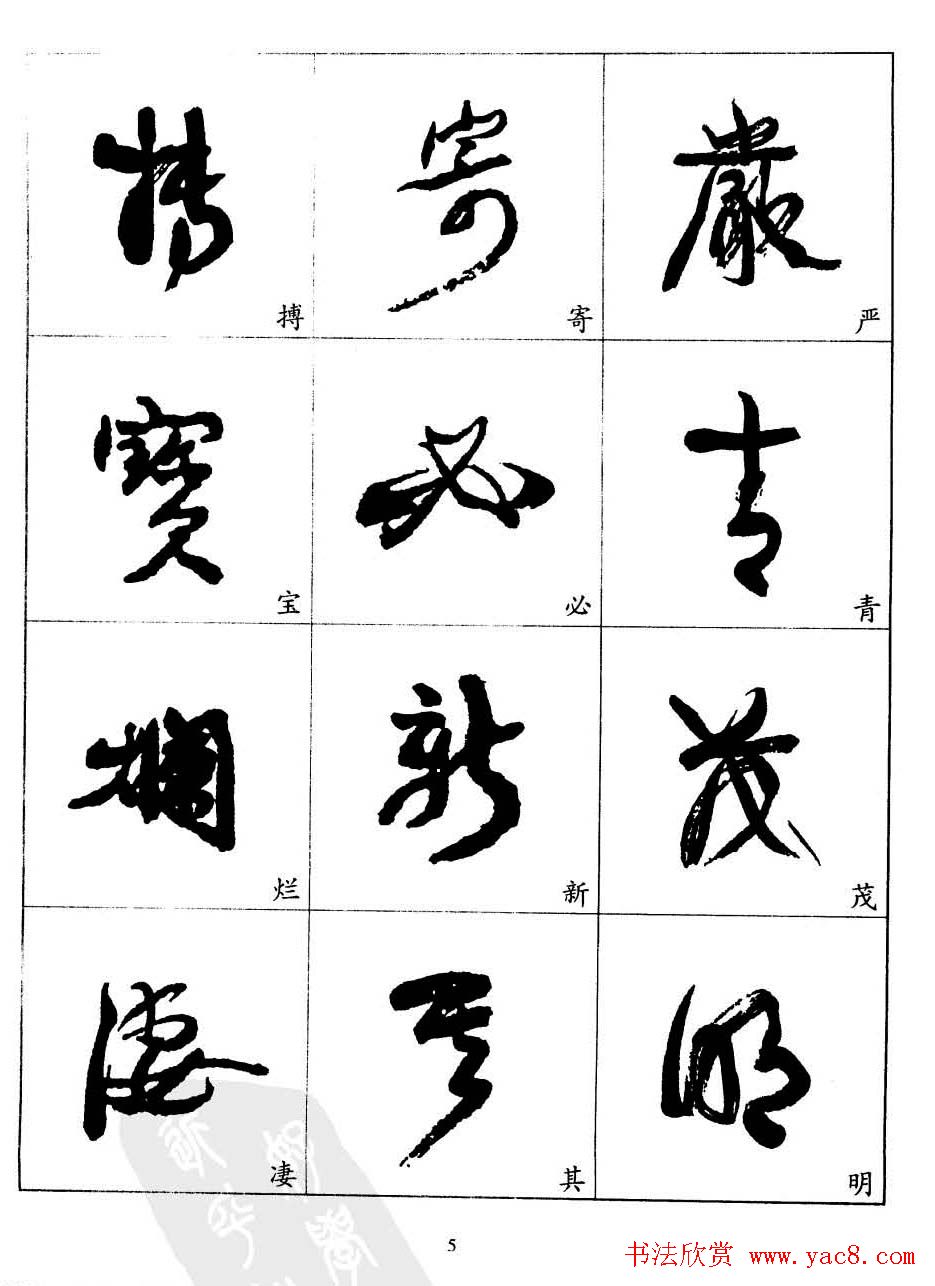 搏 寄 严
宝 必 青
烂 新 茂
凄 其 明
5
书法欣赏 www.yac8.com